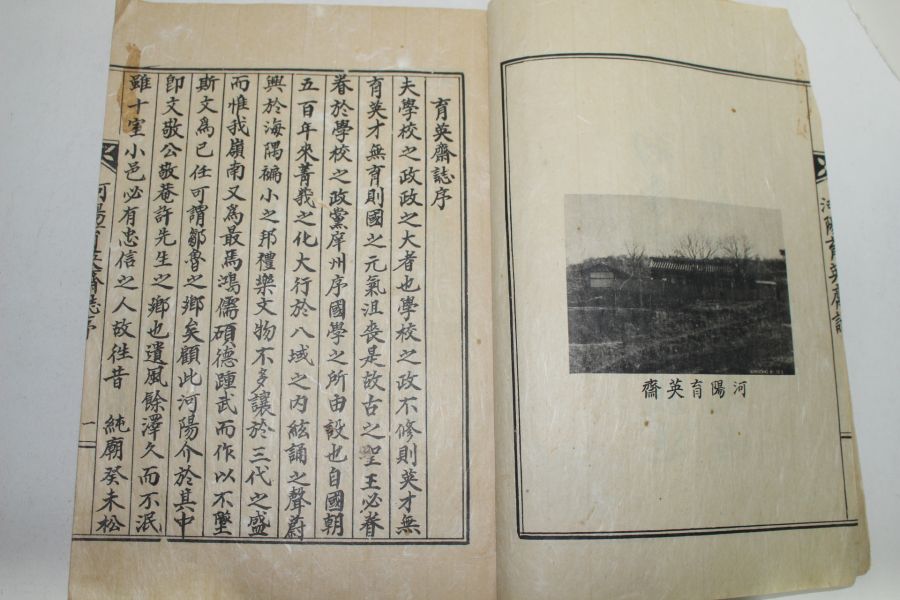 河陽育英齋
河陽育英齋誌
育英齋誌序
夫學校之政政之大者也學校之政不修則英才無
育英才無育則國之元氣沮喪是故古之聖王必眷
眷於學校之政黨庠州序國學之所由設也自國朝
五百年來菁莪之化大行於八域之内絃誦之聲蔚
興於海隅褊小之邦禮樂文物不多讓於三代之盛
而惟我嶺南又爲最焉鴻儒碩德踵武而作以不墜
斯文爲已任可謂鄒魯之鄉矣顧此河陽介於其中
卽文敬公敬菴許先生之鄉也遺風餘澤久而不泯
雖十室小邑必有忠信之人故徃昔 純廟癸未松
河陽育英齋誌序
一